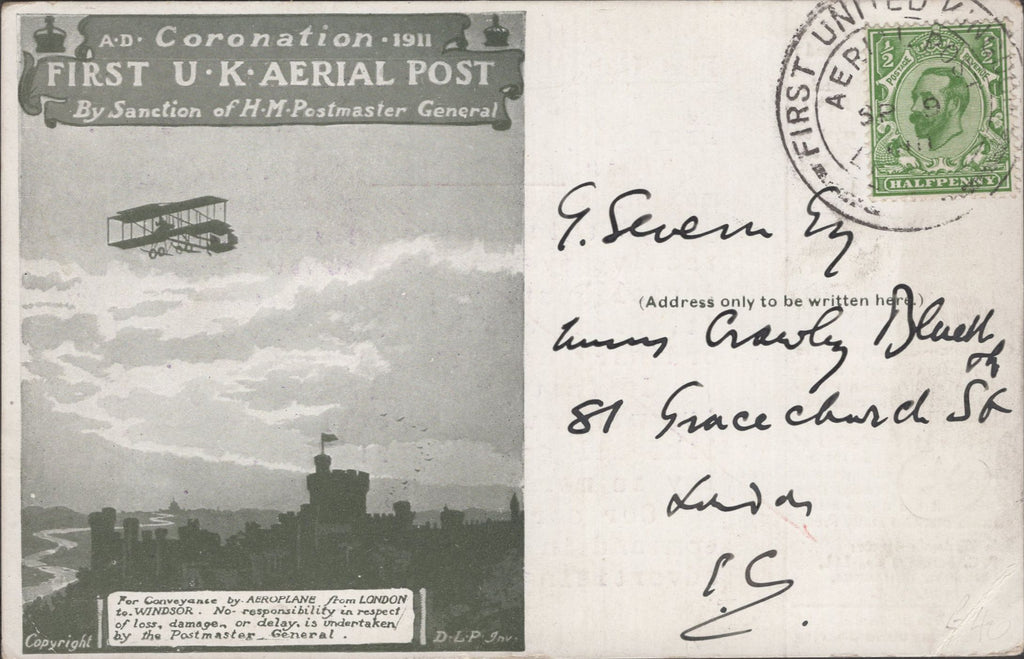 A·D· Coronation · 1911
FIRST U·K·AERIAL POST
By Sanction of H·M·Postmaster General
For Conveyance by AEROPLANE from LONDON
to WINDSOR. No responsibility in respect
of loss, damage, or delay, is undertaken
by the Postmaster General.
Copyright
D·L·P· Inv.
FIRST UNITED
AERIAL
½ ½
POSTAGE REVENUE
HALFPENNY
G. Severn Esq
(Address only to be written here.)
Crawley
81 Gracechurch St
London
E.C.